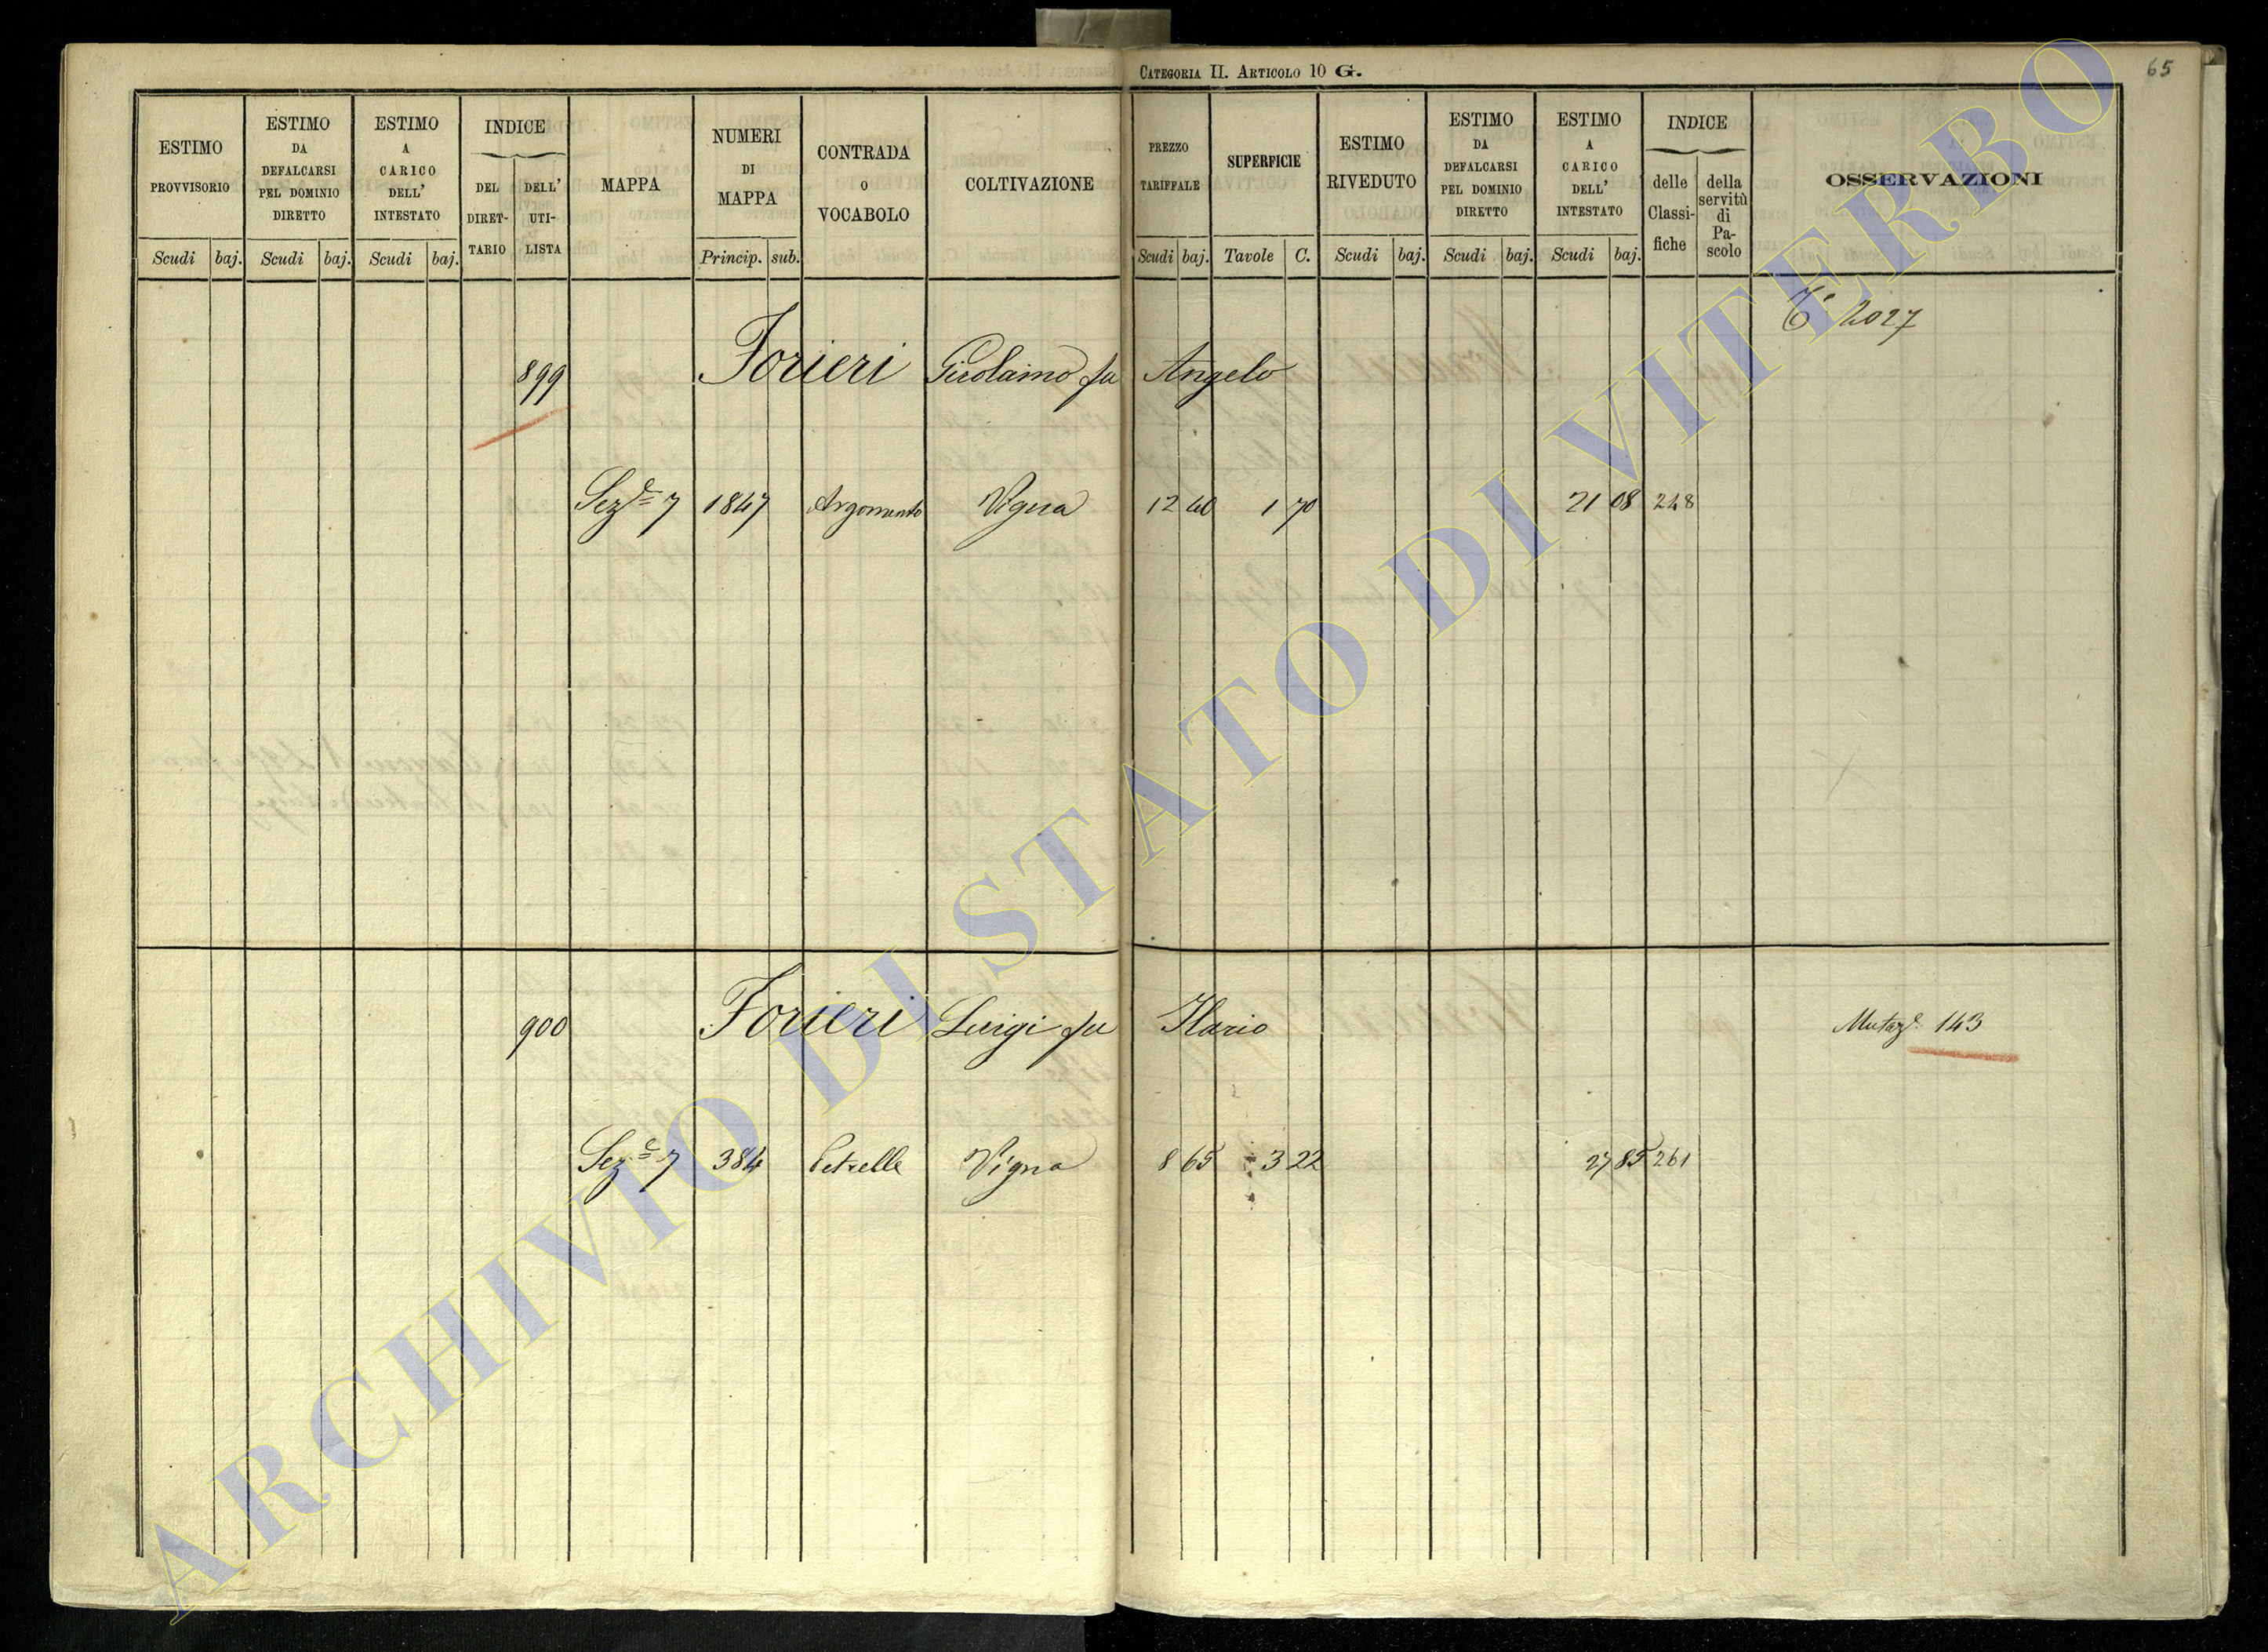 CATEGORIA II. ARTICOLO 10 G.
65
ESTIMO PROVVISORIO
Scudi baj.
ESTIMO DA DEFALCARSI PEL DOMINIO DIRETTO
Scudi baj.
ESTIMO A CARICO DELL' INTESTATO
Scudi baj.
INDICE
DEL DIRET-TARIO
DELL' UTI-LISTA
MAPPA
NUMERI DI MAPPA
Princip. sub.
CONTRADA O VOCABOLO
COLTIVAZIONE
PREZZO TARIFFALE
Scudi baj.
SUPERFICIE
Tavole C.
ESTIMO RIVEDUTO
Scudi baj.
ESTIMO DA DEFALCARSI PEL DOMINIO DIRETTO
Scudi baj.
ESTIMO A CARICO DELL' INTESTATO
Scudi baj.
INDICE
delle Classi-fiche
della servitù di Pa-scolo
OSSERVAZIONI
2027
899 Forieri Girolamo fu Angelo
Sez.e 7 1847 Argomento Vigna 12 40 1 70 21 08 248
900 Forieri Luigi fu Ilario Mutaz.e 143
Sez.e 7 384 Petrelle Vigna 8 65 3 22 27 85 261
ARCHIVIO DI STATO DI VITERBO